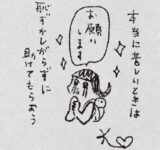 本当に苦しいときは
お願い
します
恥ずかしがらずに
助けてもらおう